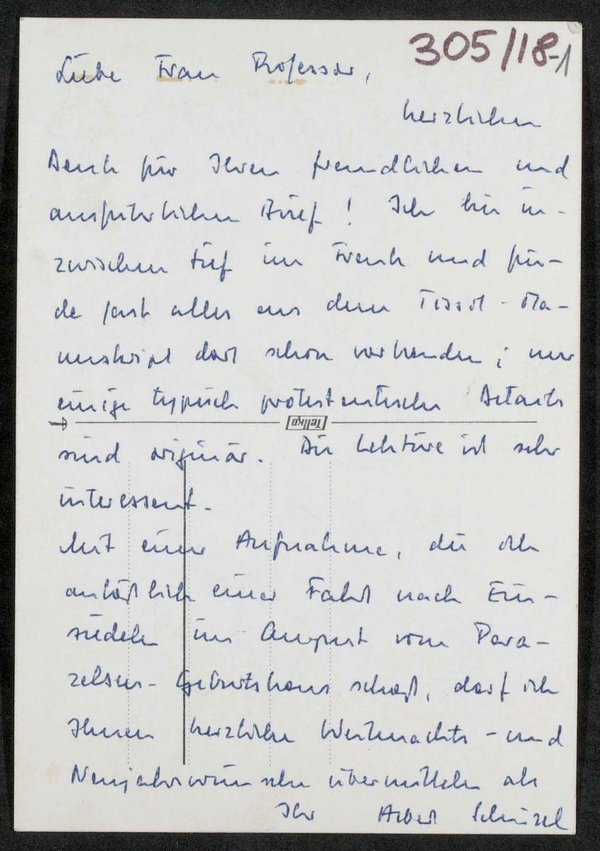 305/18-1
Liebe Frau Professor,
herzlichen
Dank für Ihren freundlichen und
ausführlichen Brief! Ich bin in-
zwischen tief im Frank und fin-
de fast alles aus dem Tissot-Ma-
nuskript dort schon vorhanden; nur
einige typisch protestantische Details
Tellko
sind originär. Die Lektüre ist sehr
interessant.
Mit einer Aufnahme, die ich
anläßlich einer Fahrt nach Ein-
siedeln im August vom Para-
zelsus-Geburtshaus schoß, darf ich
Ihnen herzliche Weihnachts- und
Neujahrswünsche übermitteln als
Ihr